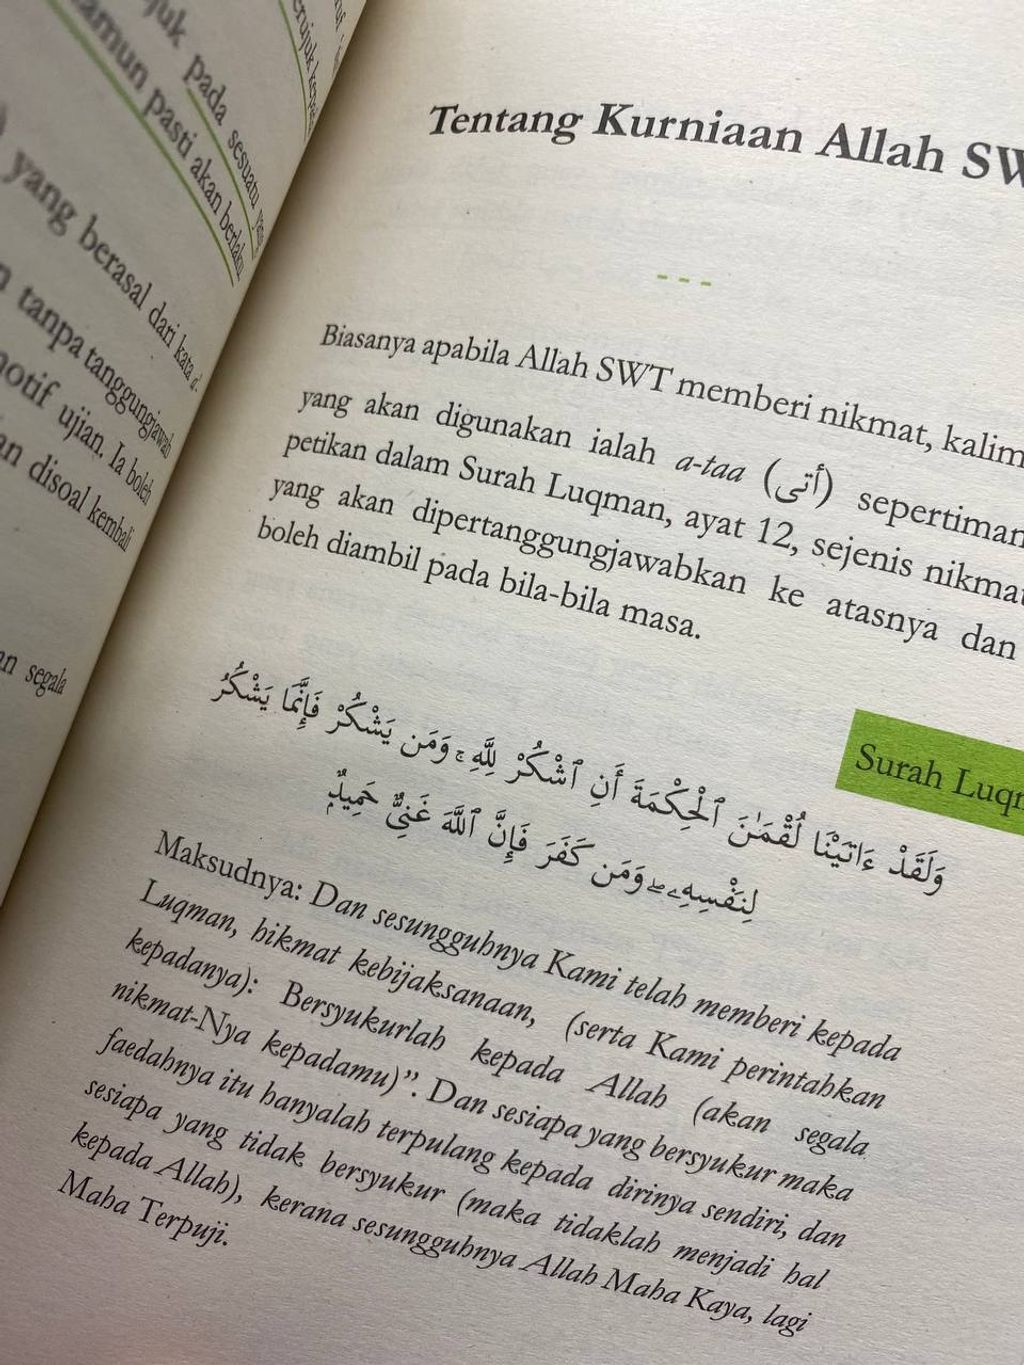 pada sesuatu yang
pasti akan berlaku
yang berasal dari kata a'-
tanpa tanggungjawab
ujian. Ia boleh
disoal kembali
segala
Tentang Kurniaan Allah
- - -
Biasanya apabila Allah SWT memberi nikmat,
yang akan digunakan ialah a-taa (أتى)
petikan dalam Surah Luqman, ayat 12, sejenis
yang akan dipertanggungjawabkan ke atasnya dan
boleh diambil pada bila-bila masa.
Surah
وَلَقَدْ ءَاتَيْنَا لُقْمَـٰنَ ٱلْحِكْمَةَ أَنِ ٱشْكُرْ لِلَّهِ ۚ وَمَن يَشْكُرْ فَإِنَّمَا يَشْكُرُ
لِنَفْسِهِۦ ۖ وَمَن كَفَرَ فَإِنَّ ٱللَّهَ غَنِىٌّ حَمِيدٌۭ
Maksudnya: Dan sesungguhnya Kami telah memberi kepada
Luqman, hikmat kebijaksanaan, (serta Kami perintahkan
kepadanya): Bersyukurlah kepada Allah (akan segala
nikmat-Nya kepadamu)”. Dan sesiapa yang bersyukur maka
faedahnya itu hanyalah terpulang kepada dirinya sendiri, dan
sesiapa yang tidak bersyukur (maka tidaklah menjadi hal
kepada Allah), kerana sesungguhnya Allah Maha Kaya, lagi
Maha Terpuji.